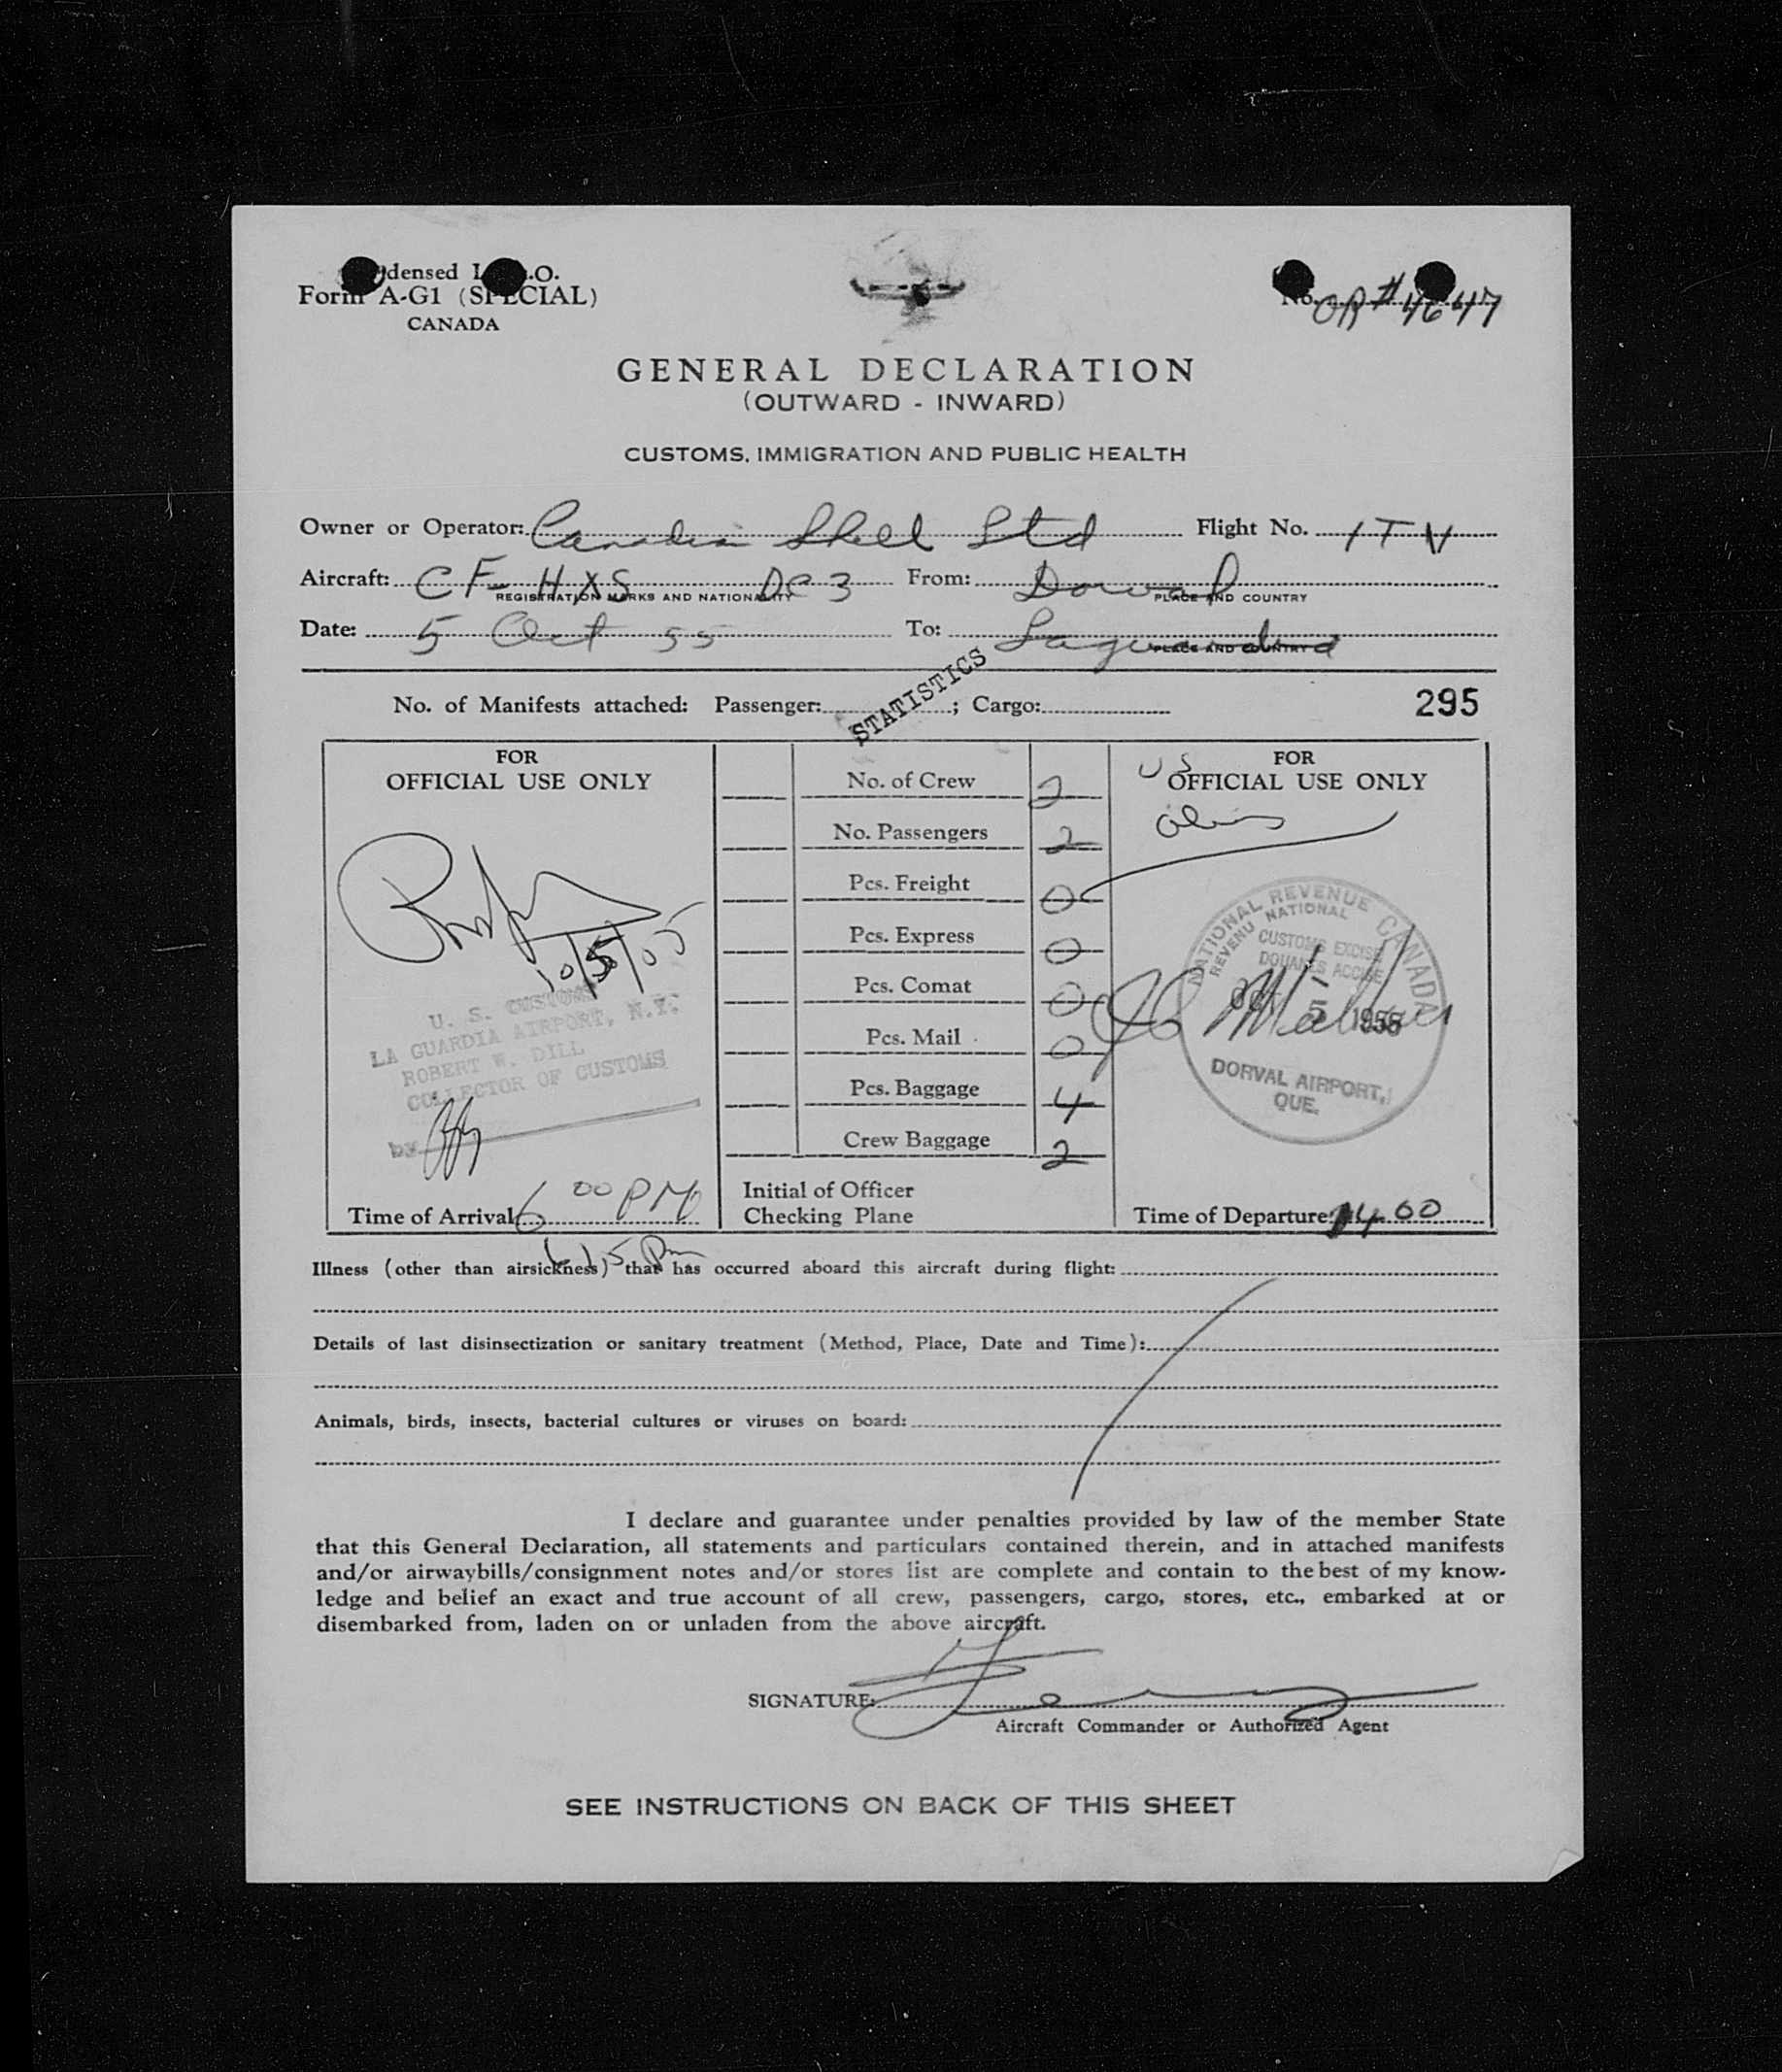 densed I .O.
Form A-G1 (SPECIAL)
CANADA
No. OR # 4647
GENERAL DECLARATION
(OUTWARD - INWARD)
CUSTOMS, IMMIGRATION AND PUBLIC HEALTH
Owner or Operator: Canadian Shell Ltd Flight No. ITV
Aircraft: CF-HXS DC3 From: Dorval
REGISTRATION MARKS AND NATIONALITY PLACE AND COUNTRY
Date: 5 Oct 55 To: Laguardia
PLACE AND COUNTRY
STATISTICS
No. of Manifests attached: Passenger: ; Cargo: 295
FOR
OFFICIAL USE ONLY
10/5/55
U. S. CUSTOMS
LA GUARDIA AIRPORT, N.Y.
ROBERT W. DILL
COLLECTOR OF CUSTOMS
by
Time of Arrival 6 00 PM
No. of Crew 2
No. Passengers 2
Pcs. Freight 0
Pcs. Express 0
Pcs. Comat 0
Pcs. Mail 0
Pcs. Baggage 4
Crew Baggage 2
Initial of Officer
Checking Plane
US
FOR
OFFICIAL USE ONLY
NATIONAL REVENUE CANADA
REVENU NATIONAL
CUSTOMS EXCISE
DOUANES ACCISE
OCT 5 1955
DORVAL AIRPORT,
QUE.
Time of Departure: 1400
6 15 pm
Illness (other than airsickness) that has occurred aboard this aircraft during flight:
Details of last disinsectization or sanitary treatment (Method, Place, Date and Time):
Animals, birds, insects, bacterial cultures or viruses on board:
I declare and guarantee under penalties provided by law of the member State
that this General Declaration, all statements and particulars contained therein, and in attached manifests
and/or airwaybills/consignment notes and/or stores list are complete and contain to the best of my know-
ledge and belief an exact and true account of all crew, passengers, cargo, stores, etc., embarked at or
disembarked from, laden on or unladen from the above aircraft.
SIGNATURE:
Aircraft Commander or Authorized Agent
SEE INSTRUCTIONS ON BACK OF THIS SHEET